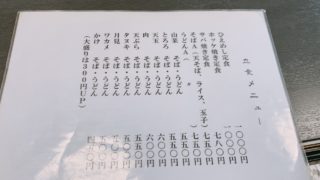 立食メニュー
ひえめし定食 一〇〇〇円
ホッケ焼き定食 一〇〇〇円
サバ焼き定食 七八〇円
そばA(天そば、ライス、玉子) 七五〇円
うどんA 〃 七五〇円
山菜 そば・うどん 五五〇円
とろろ そば・うどん 五五〇円
天玉 そば・うどん 六〇〇円
肉 そば・うどん 六〇〇円
天ぷら そば・うどん 五五〇円
タヌキ そば・うどん
月見 そば・うどん
ワカメ そば・うどん
かけ そば・うどん
(大盛りは300円UP)